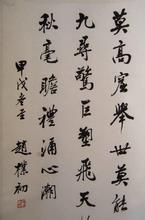 莫高窟舉世莫能
九尋驚巨塑飛天
秋毫瞻禮涌心潮
甲戌冬至
趙樸初